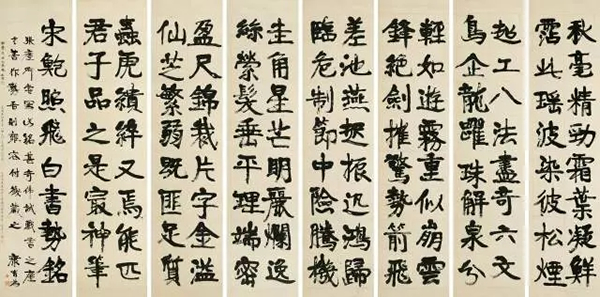 秋毫精勁霜葉凝鮮
霑此瑤波染彼松煙
超工八法盡奇六文
鳥企龍躍珠解泉分
輕如遊霧重似崩雲
鋒絕劍摧驚勢箭飛
差池燕起振迅鴻歸
臨危制節中險騰機
圭角星芒明麗爛逸
絲縈髮垂平理端密
盈尺錦裁片字金溢
仙芝繁弱既匪足質
蟲虎續又焉能匹
君子品之是最神筆
宋鮑照飛白書勢銘
寫此銘甚奇偉試戲書之
康有為